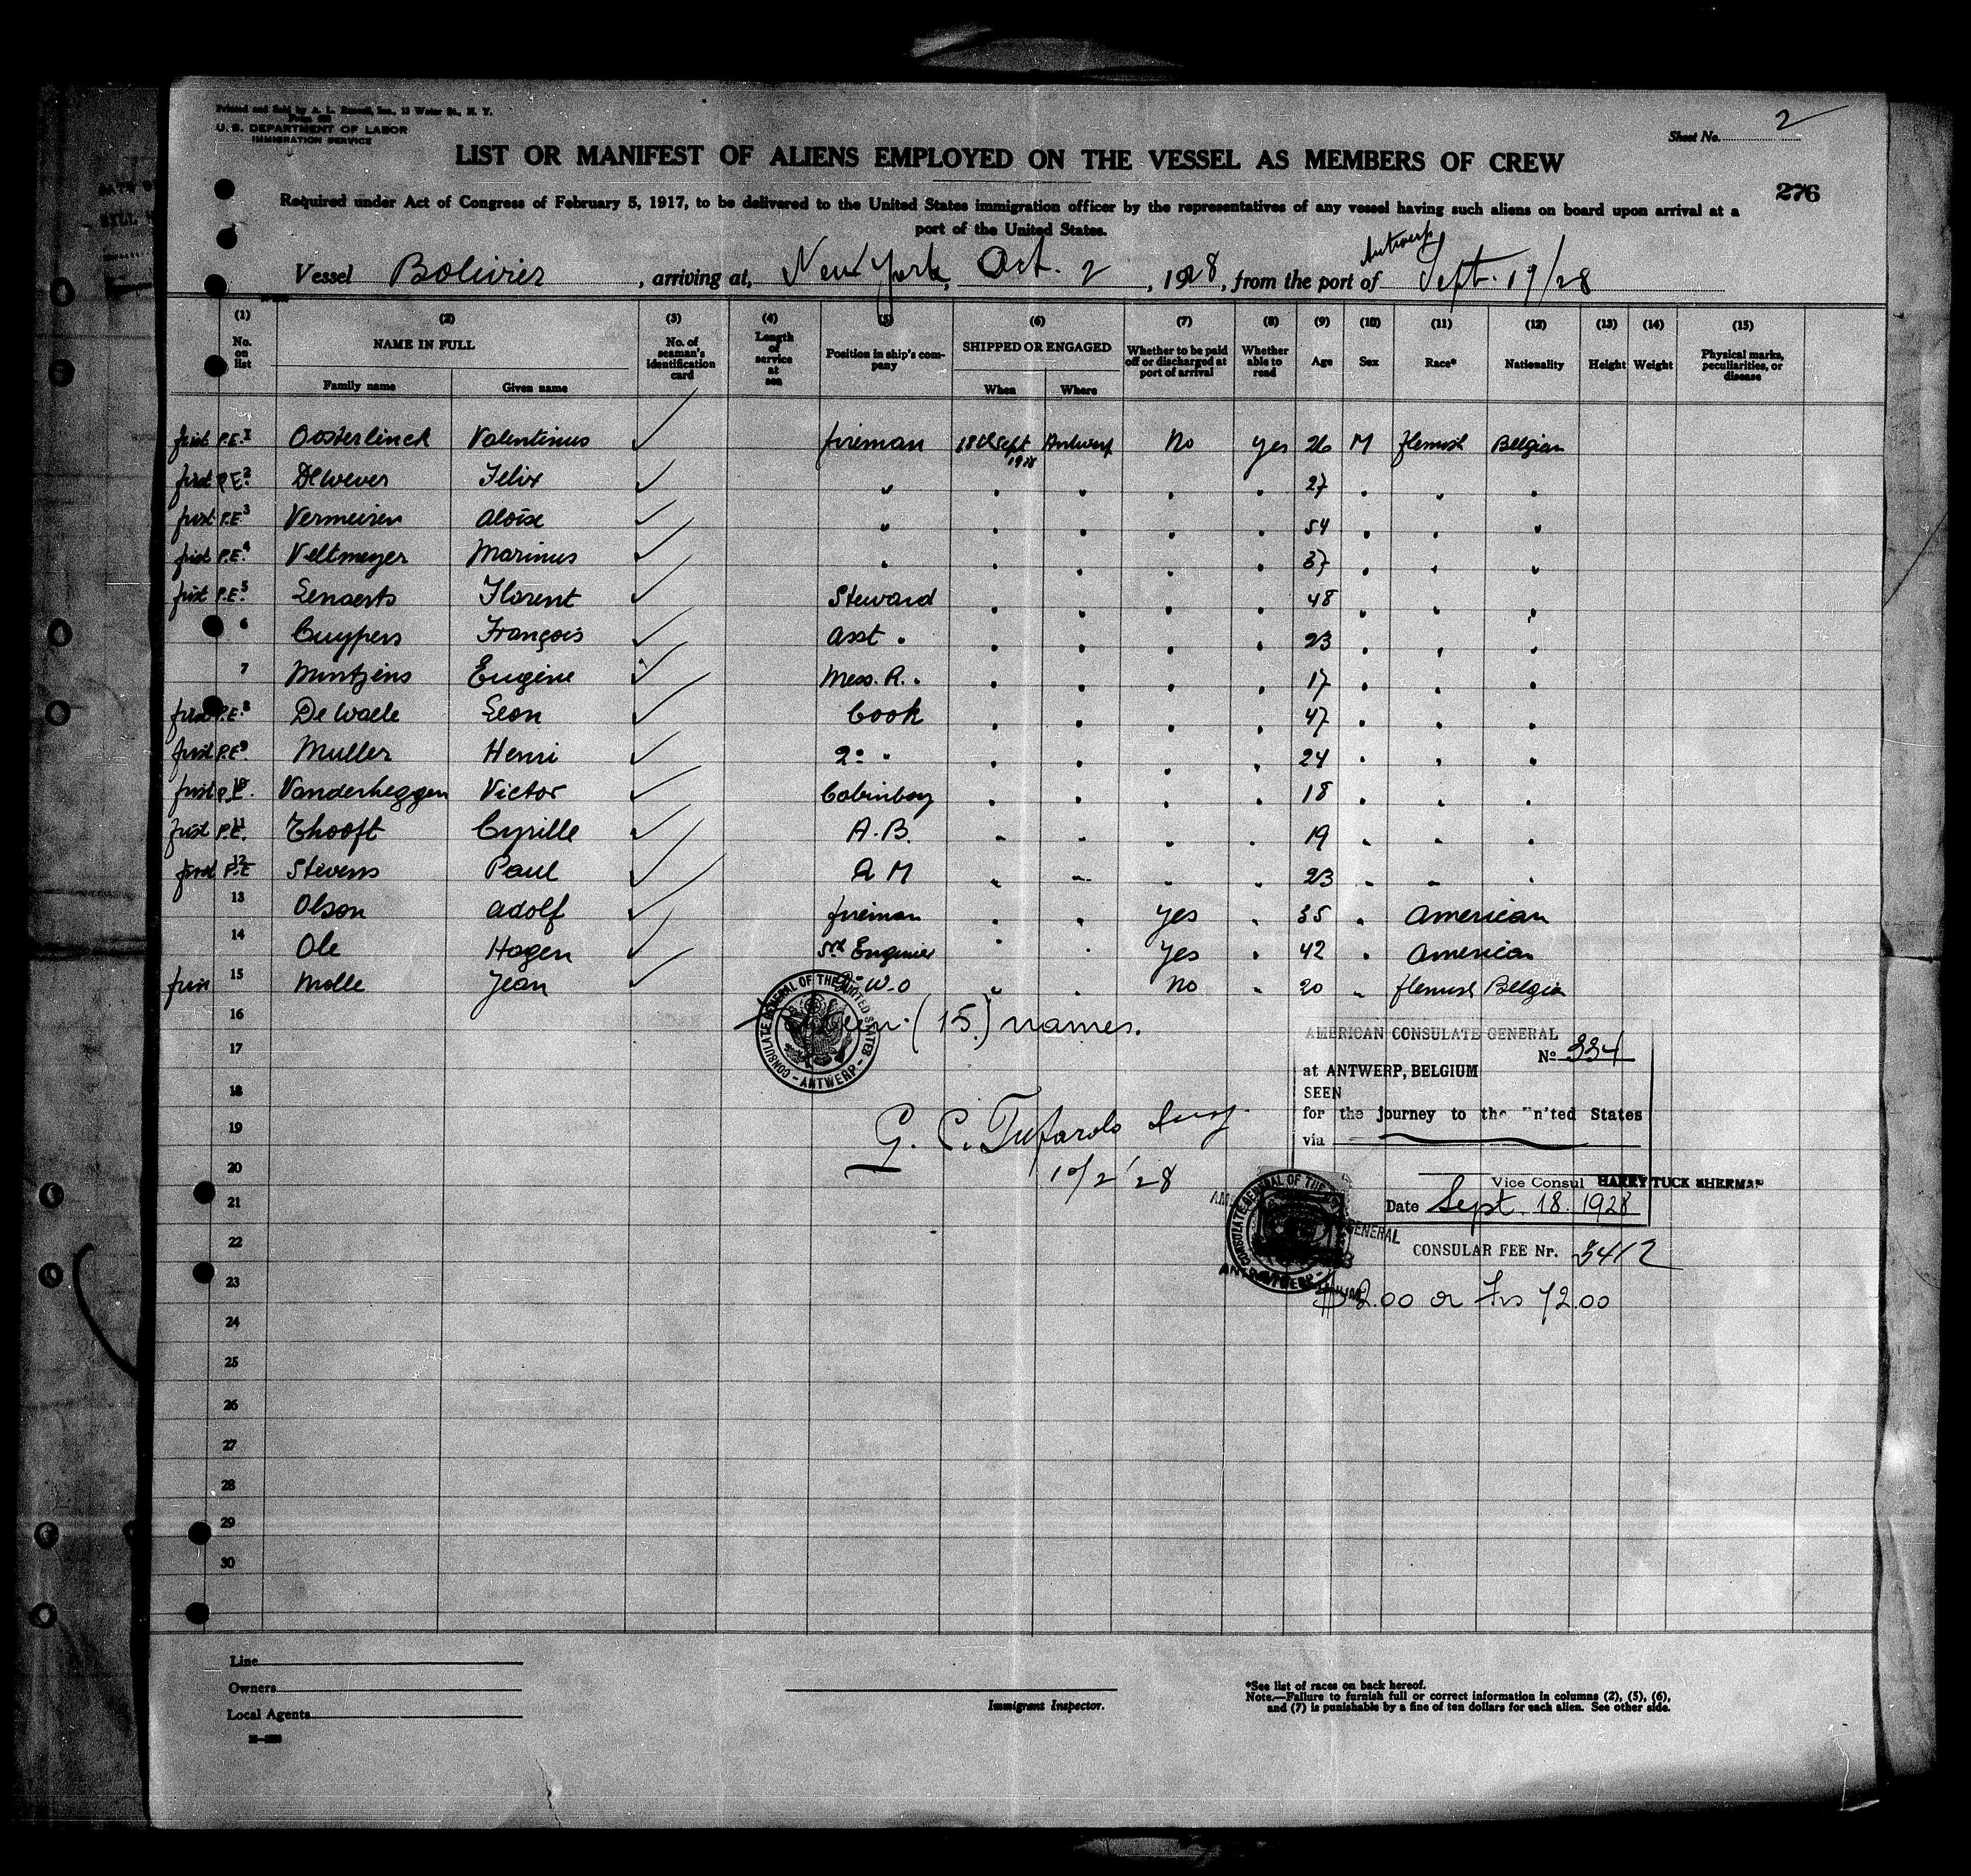 Printed and Sold by A. L. Russell, Inc., 12 Water St., N. Y.
U. S. DEPARTMENT OF LABOR
IMMIGRATION SERVICE
Sheet No. 2
LIST OR MANIFEST OF ALIENS EMPLOYED ON THE VESSEL AS MEMBERS OF CREW
276
Required under Act of Congress of February 5, 1917, to be delivered to the United States immigration officer by the representatives of any vessel having such aliens on board upon arrival at a
port of the United States.
Antwerp
Vessel Bolivier, arriving at, New York, Oct. 2, 1928, from the port of Sept. 19/28
(1) (2) (3) (4) (5) (6) (7) (8) (9) (10) (11) (12) (13) (14) (15)
No. on list NAME IN FULL No. of seaman's identification card Length of service at sea Position in ship's company SHIPPED OR ENGAGED Whether to be paid off or discharged at port of arrival Whether able to read Age Sex Race* Nationality Height Weight Physical marks, peculiarities, or disease
Family name Given name When Where
first P.E. 1 Oosterlinck Valentinus fireman 18th Sept 1928 Antwerp No yes 26 M flemish Belgian
first P.E. 2 De Wever Felix " " " " " 27 " " "
first P.E. 3 Vermeiren Aloïse " " " " " 54 " " "
first P.E. 4 Veltmeyer Marinus " " " " " 37 " " "
first P.E. 5 Lenaerts Florent Steward " " " " 48 " " "
6 Cuypers François asst " " " " " 23 " " "
7 Mintjens Eugène Mess. R. " " " " 17 " " "
first P.E. 8 De Waele Leon Cook " " " " 47 " " "
first P.E. 9 Muller Henri 2° " " " " " 24 " " "
first P.E. 10 Vanderheggen Victor Cabinboy " " " " 18 " " "
first P.E. 11 Thooft Cyrille A.B. " " " " 19 " " "
first P.E. 12 Stevens Paul A M " " " " 23 " " "
13 Olson Adolf fireman " " yes " 35 " American
14 Ole Hagen 3rd Enginier " " yes " 42 " American
15 Molle Jean W.O " " No " 20 " flemish Belgia
16
(15) names.
CONSULATE GENERAL OF THE UNITED STATES - ANTWERP -
AMERICAN CONSULATE GENERAL
No 334
17
at ANTWERP, BELGIUM
SEEN
18
for the journey to the United States
19
via
G. C. Tufarolo
20
10/2/28
Vice Consul HARRY TUCK SHERMAN
21
Date Sept. 18. 1928
22
CONSULAR FEE Nr. 3412
23
$2.00 or Frs 72.00
24
25
26
27
28
29
30
Line
Owners
Local Agents
Immigrant Inspector.
*See list of races on back hereof.
Note.—Failure to furnish full or correct information in columns (2), (5), (6),
and (7) is punishable by a fine of ten dollars for each alien. See other side.